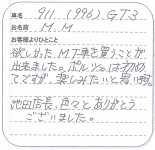 車名 911 (996) GT3
お名前 M.M
お客様よりひとこと
欲しかった MT車を買うことが
出来ました。ポルシェは初めて
ですが、楽しみたいと思います。
池田店長、色々とありがとう
ございました。